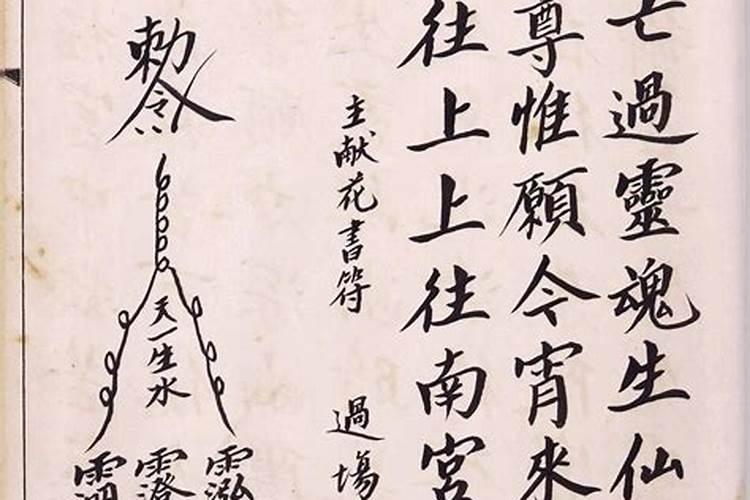 亡過靈魂生仙
尊惟願今宵來
往上上往南宮
主献花書符
過場
勅令
天一生水